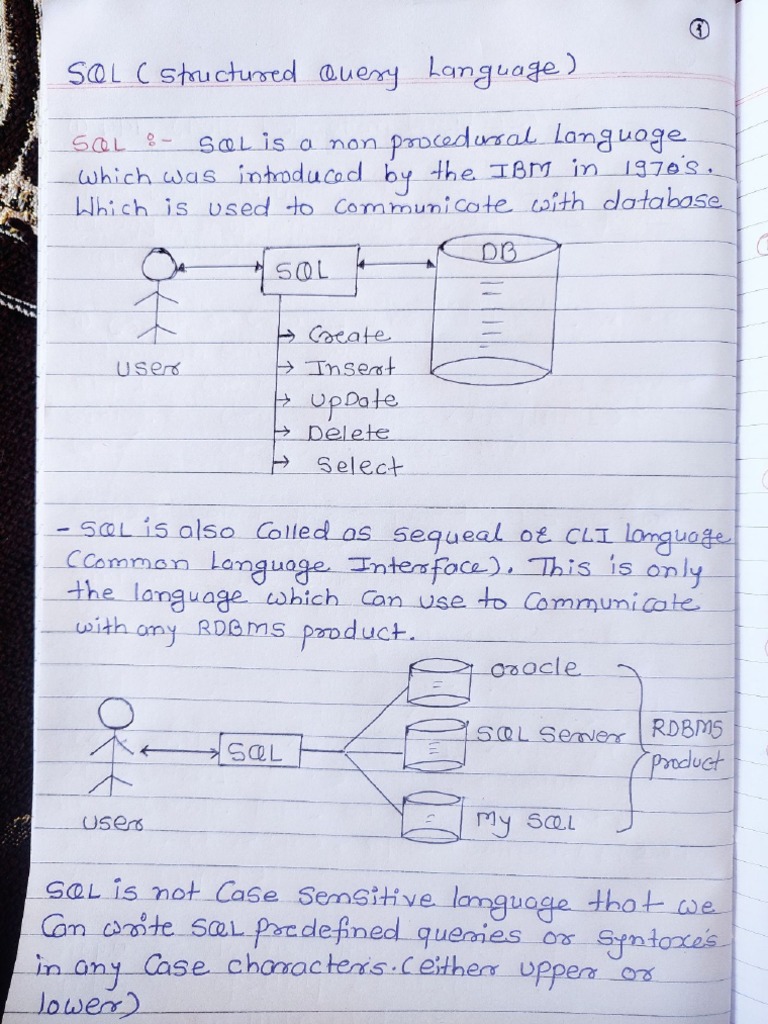 1
SQL (Structured Query Language)
SQL :- SQL is a non procedural language
which was introduced by the IBM in 1970's.
Which is used to communicate with database
SQL
DB
user
→ Create
→ Insert
→ UpDate
→ Delete
→ Select
- SQL is also Called as sequeal or CLI language
(Common Language Interface). This is only
the language which can use to communicate
with any RDBMS product.
user
SQL
Oracle
SQL Server
My SQL
RDBMS
product
SQL is not Case Sensitive language that we
Can write SQL predefined queries or Syntaxe's
in any Case characters. (either upper or
lower)